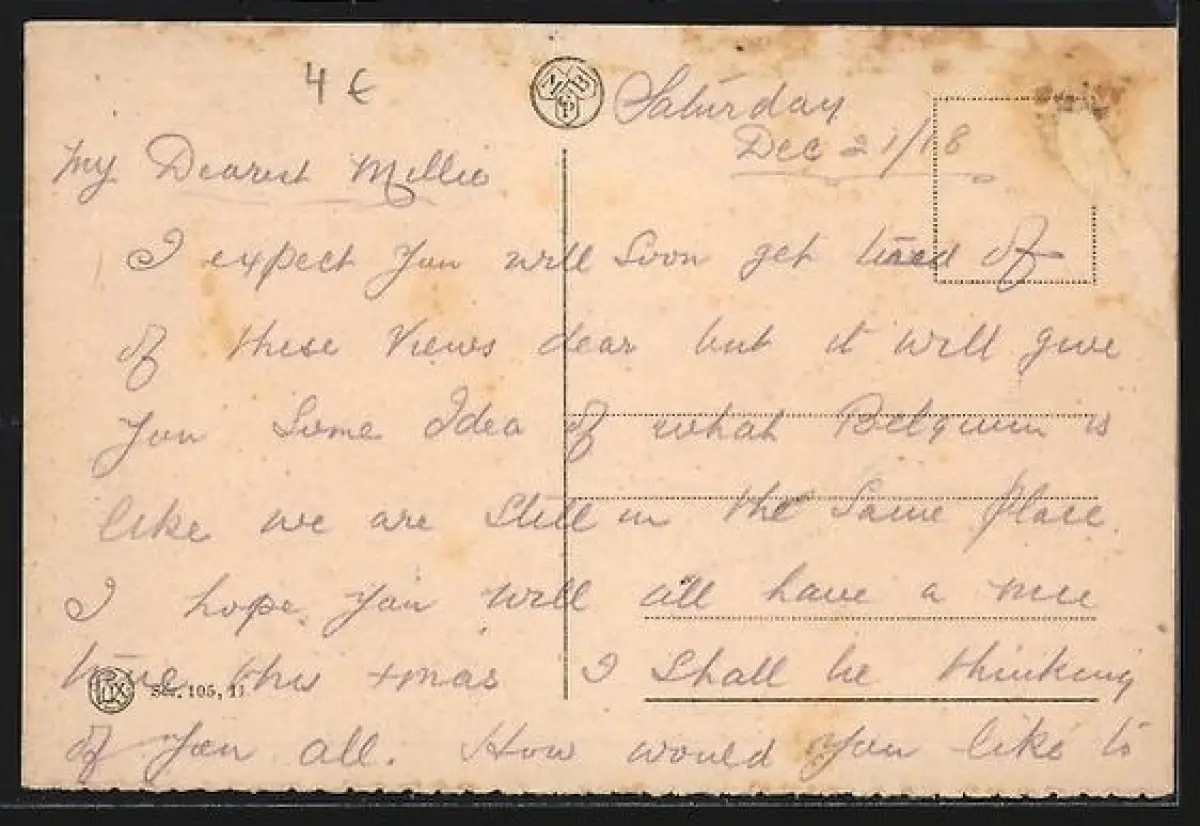 4 €
N B
C P
Saturday
Dec 21/18
My Dearest Millie
I expect you will soon get tired of
of these views dear but it will give
you some Idea of what Belgium is
like we are still in the same place.
I hope you will all have a nice
time this xmas I shall be thinking
of you all. How would you like to
LUX
Ser. 105, 11